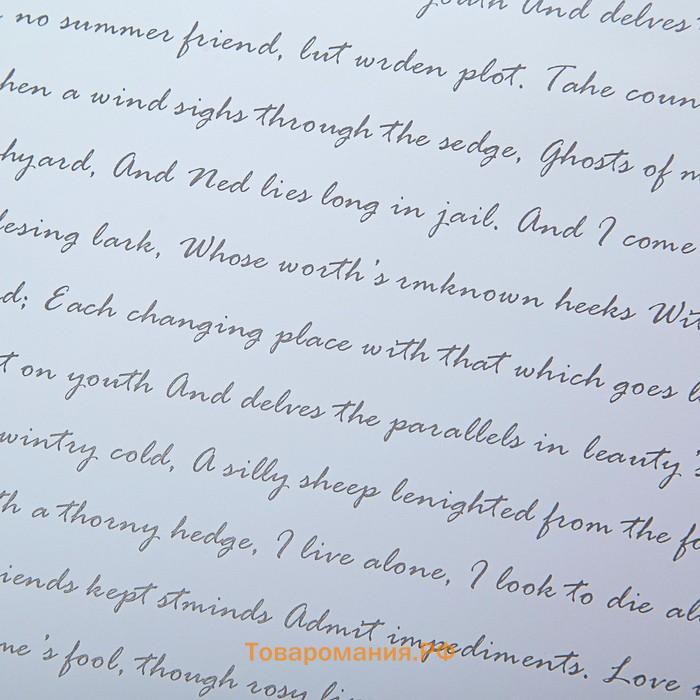 youth And delves
no summer friend, lut wrden plot. Take coun
hen a wind sighs through the sedge, Ghosts of m
hyard, And Ned lies long in jail. And I come
lesing lark, Whose worth's rmknown heeks Wit
d; Each changing place with that which goes l
t on youth And delves the parallels in leauty's
wintry cold, A silly sheep lenighted from the fo
th a thorny hedge, I live alone, I look to die al
iends kept stminds Admit impediments. Love
me's fool, though rosy li
Товаромания.РФ